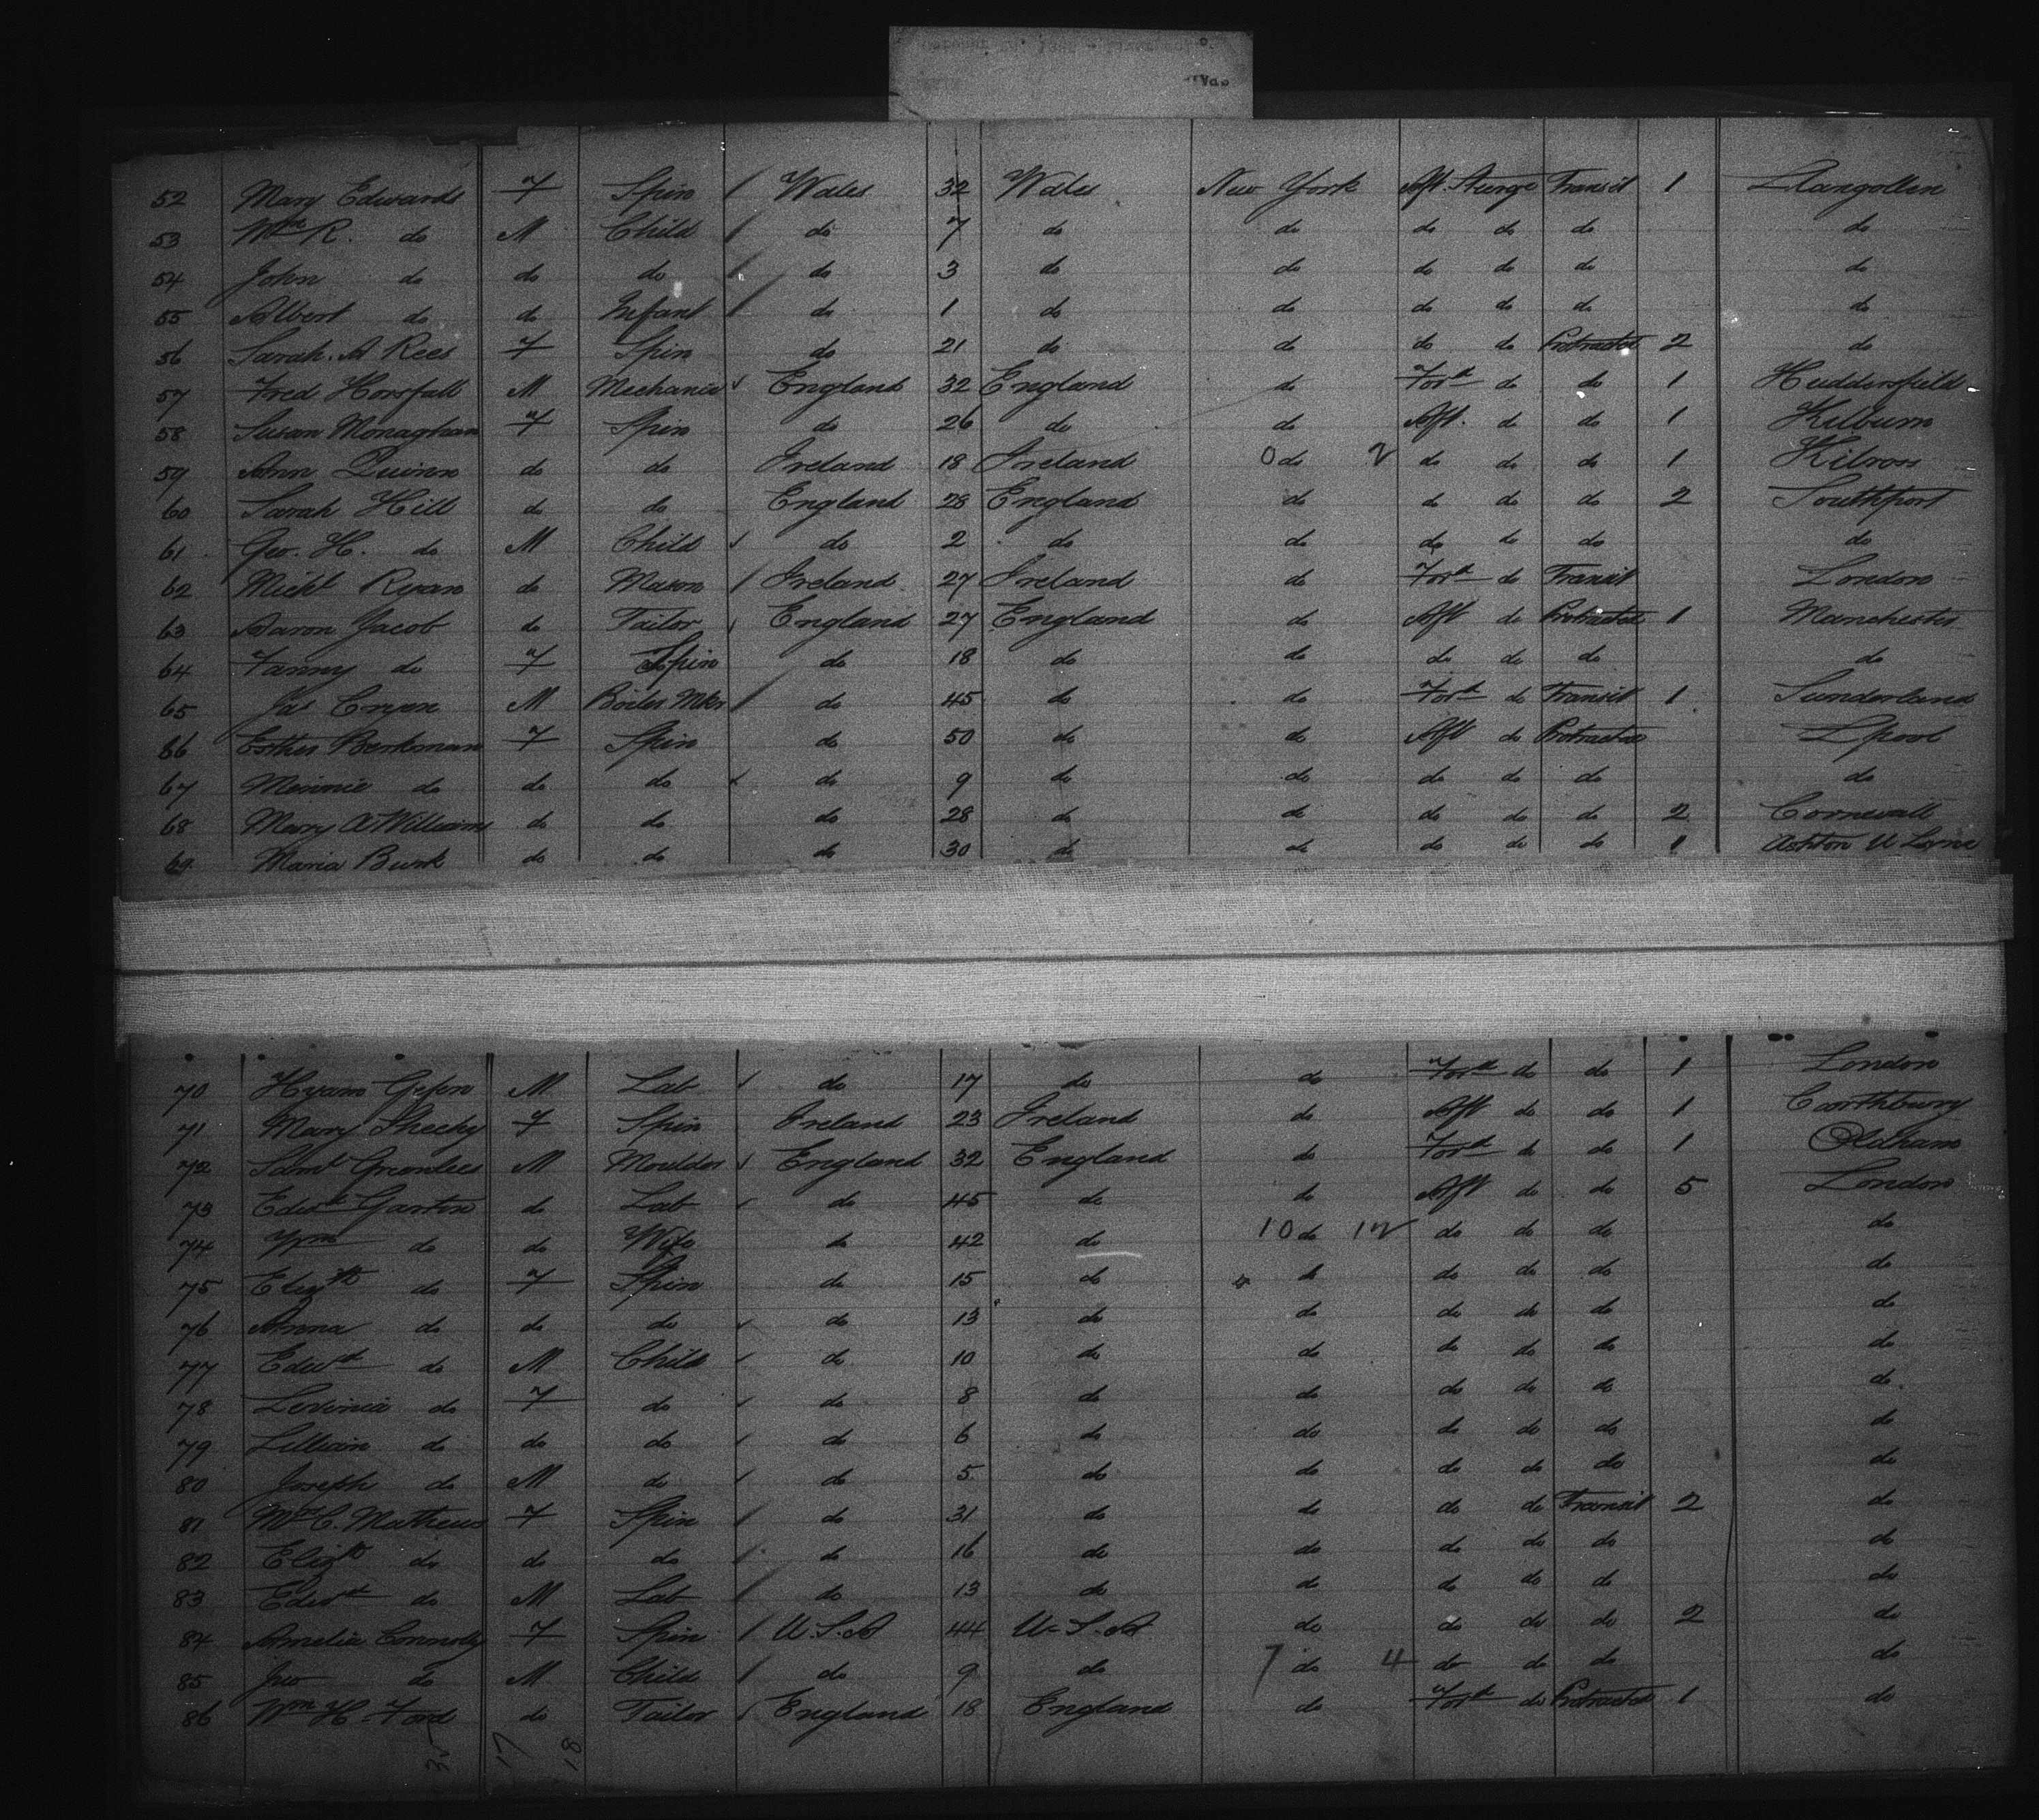 52 Mary Edwards F Spin / Wales 32 Wales New York Aft. Steerge Transit 1 Llangollen
53 Wm R. do M Child / do 7 do do do do do do
54 John do do do / do 3 do do do do do do
55 Albert do do Infant / do 1 do do do do do do
56 Sarah. A Rees F Spin do 21 do do do do Protracted 2 do
57 Fred Horsfall M Mechanic England 32 England do Ford do do 1 Huddersfield
58 Susan Monaghan F Spin do 26 do do Aft. do do 1 Kilburn
59 Ann Quinn do do Ireland 18 Ireland 0 do 2 do do do 1 Kilross
60 Sarah Hill do do England 28 England do do do do 2 Southport
61 Geo. H. do M Child do 2 do do do do do do
62 Michl Ryan do Mason / Ireland 27 Ireland do Ford do Transit London
63 Aaron Jacob do Tailor England 27 England do Aft do Protracted 1 Manchester
64 Fanny do F Spin do 18 do do do do do do
65 Jas M Boiler Mkr / do 45 do do Ford do Transit 1 Sunderland
66 Esther Berkman F Spin do 50 do do Aft do Protracted Lpool
67 Minnie do do do do 9 do do do do do do
68 Mary A Williams do do do 28 do do do do do 2 Cornwall
69 Maria Burk do do do 30 do do do do do 1 Ashton U Lyne
70 Hyam M Lab do 17 do do Ford do do 1 London
71 Mary Sheehy F Spin Ireland 23 Ireland do Aft do do 1
72 Saml Greenlees M Moulder England 32 England do Ford do do 1 Oldham
73 Edwd Garton do Lab do 45 do do Aft do do 5 London
74 do do Wife do 42 do 10 do 12 do do do do
75 Elizth do F Spin do 15 do do do do do
76 Anna do do do do 13 do do do do do do
77 Edwd do M Child do 10 do do do do do do
78 Levinia do F do do 8 do do do do do do
79 Lillian do do do do 6 do do do do do do
80 Joseph do M do do 5 do do do do do do
81 C. Mathews F Spin / do 31 do do do do Transit 2 do
82 Elizth do do do / do 16 do do do do do do
83 Edwd do M Lab / do 13 do do do do do do
84 Amelia Connolly F Spin / U.S.A 44 U.S.A do do do do 2 do
85 Jno do M Child / do 9 do 7 do 4 do do do do
86 Wm H. Ford do Tailor England 18 England do Ford do Protracted 1 do
17 18